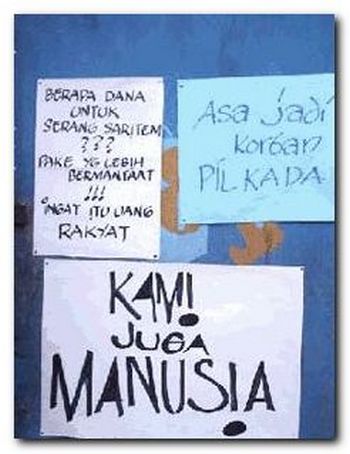 BERAPA DANA
UNTUK
SERANG SARITEM
???
PAKE YG LEBIH
BERMANFAAT
!!!
iNGAT ITU UANG
RAKYAT
Asa jadi
korban
PILKADA
KAMI
JUGA
MANUSIA